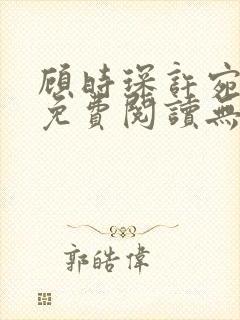 顧時琛許宛
免費閱讀無
郭皓偉